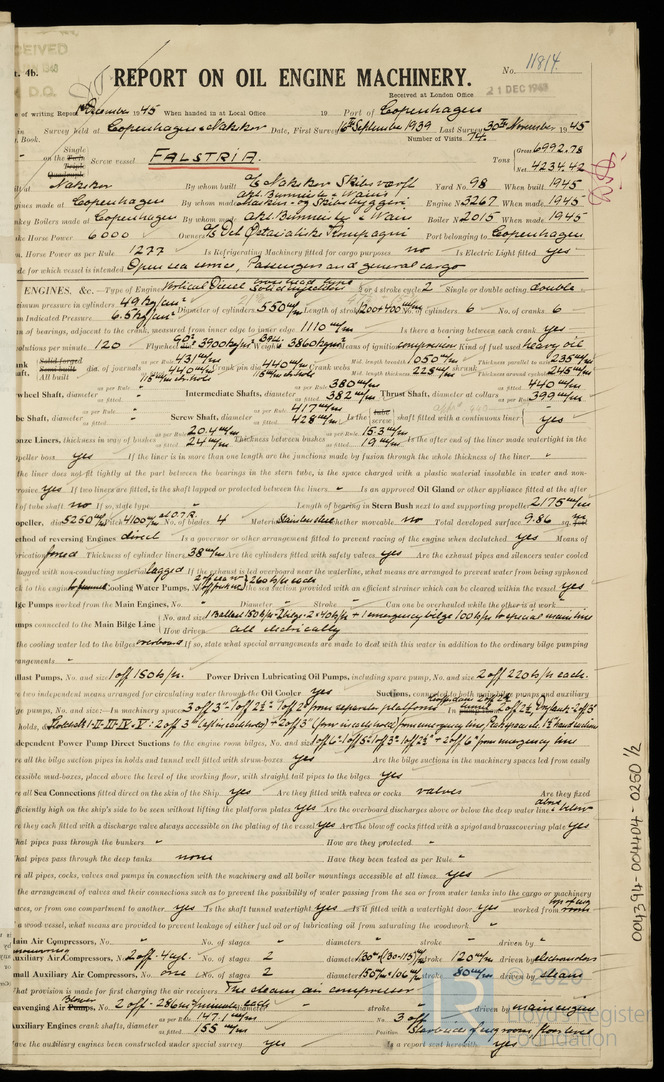 CEIVED
t. 4b.
D.O.
REPORT ON OIL ENGINE MACHINERY.
No. 11814
Received at London Office
21 DEC 1945
e of writing Report December 1945 When handed in at Local Office 19 Port of Copenhagen
in Survey held at Copenhagen & Nakskov Date, First Survey 16th September 1939 Last Survey 30th November 1945
Book. Number of Visits 74
Single
on the Twin Screw vessel FALSTRIA. Tons Gross 6992.78
Triple
Quadruple
Net 4234.42
ilt at Nakskov By whom built A/S Nakskov Skibsværft Yard No. 98 When built 1945
gines made at Copenhagen By whom made Akt. Burmeister & Wain's Maskin- og Skibsbyggeri Engine No. 3267 When made 1945
nkey Boilers made at Copenhagen By whom made Akt. Burmeister & Wain Boiler No. 2015 When made 1945
ke Horse Power 6000 Owners A/S Det Østasiatiske Kompagni Port belonging to Copenhagen
m. Horse Power as per Rule 1277 Is Refrigerating Machinery fitted for cargo purposes no Is Electric Light fitted yes
de for which vessel is intended Open sea service, Passengers and general cargo
ENGINES, &c. Type of Engine Vertical Diesel cross head type Solid injection 2 or 4 stroke cycle 2 Single or double acting double
ximum pressure in cylinders 49 kg/cm² Diameter of cylinders 550 m/m Length of stroke 1200+400 m/m No. of cylinders 6 No. of cranks 6
n Indicated Pressure 6.5 kg/cm²
n of bearings, adjacent to the crank, measured from inner edge to inner edge 1110 m/m Is there a bearing between each crank yes
olutions per minute 120 Flywheel 3900 kg/m² Weight 3860 kg/m² Means of ignition compression Kind of fuel used heavy oil
ank Solid forged Semi built All built dia. of journals as per Rule 431 m/m as fitted 440 m/m Crank pin dia. 440 m/m Crank webs Mid. length breadth 1050 m/m Thickness parallel to axis 235 m/m
aft. 115 m/m ctr. hole 115 m/m ctr. hole Mid. length thickness 228 m/m shrunk Thickness around eyehole 245 m/m
wheel Shaft, diameter as per Rule as fitted Intermediate Shafts, diameter as per Rule 380 m/m as fitted 382 m/m Thrust Shaft, diameter at collars as per Rule 440 m/m as fitted 399 m/m
be Shaft, diameter as per Rule as fitted Screw Shaft, diameter as per Rule 417 m/m as fitted 428 m/m Is the tube screw shaft fitted with a continuous liner yes
onze Liners, thickness in way of bushes as per Rule 20.4 m/m as fitted 24 m/m Thickness between bushes as per Rule 15.3 m/m as fitted 19 m/m Is the after end of the liner made watertight in the
opeller boss yes If the liner is in more than one length are the junctions made by fusion through the whole thickness of the liner "
the liner does not fit tightly at the part between the bearings in the stern tube, is the space charged with a plastic material insoluble in water and non-
rosive yes If two liners are fitted, is the shaft lapped or protected between the liners " Is an approved Oil Gland or other appliance fitted at the after
l of tube shaft no If so, state type " Length of bearing in Stern Bush next to and supporting propeller 2175 m/m
opeller, dia. 5250 m/m Pitch 4100 m/m at 0.7 R. No. of blades 4 Material Stainless steel whether moveable no Total developed surface 9.86 sq.
ethod of reversing Engines direct Is a governor or other arrangement fitted to prevent racing of the engine when declutched yes Means of
rication forced Thickness of cylinder liners 38 m/m Are the cylinders fitted with safety valves yes Are the exhaust pipes and silencers water cooled
lagged with non-conducting material lagged If the exhaust is led overboard near the waterline, what means are arranged to prevent water from being syphoned
ck to the engine Cooling Water Pumps, No. 2 off sea w. 260 t/h each Is the suction provided with an efficient strainer which can be cleared within the vessel yes
lge Pumps worked from the Main Engines, No. " Diameter " Stroke " Can one be overhauled while the other is at work "
mps connected to the Main Bilge Line No. and size 1 Ballast 150 t/h - 2 bilge - 2x40 t/h + 1 emergency bilge 100 t/h to special main line
How driven all electrically
the cooling water led to the bilges overboard If so, state what special arrangements are made to deal with this water in addition to the ordinary bilge pumping
rangements "
llast Pumps, No. and size 1 off 150 t/h. Power Driven Lubricating Oil Pumps, including spare pump, No. and size 2 off 220 t/h each.
e two independent means arranged for circulating water through the Oil Cooler yes Suctions, connected to both main bilge pumps and auxiliary
ge pumps, No. and size:—In machinery spaces 3 off 3" 1 off 2½" 1 off 2" from separate platforms In
holds,
dependent Power Pump Direct Suctions to the engine room bilges, No. and size 1 off 6" 1 off 5" 1 off 3" 1 off 2½" + 2 off 6" from emergency line
re all the bilge suction pipes in holds and tunnel well fitted with strum-boxes yes Are the bilge suctions in the machinery spaces led from easily
cessible mud-boxes, placed above the level of the working floor, with straight tail pipes to the bilges yes
re all Sea Connections fitted direct on the skin of the Ship yes Are they fitted with valves or cocks valves Are they fixed
fficiently high on the ship's side to be seen without lifting the platform plates yes Are the overboard discharges above or below the deep water line above & below
re they each fitted with a discharge valve always accessible on the plating of the vessel yes Are the blow off cocks fitted with a spigot and brass covering plate yes
hat pipes pass through the bunkers " How are they protected "
hat pipes pass through the deep tanks none Have they been tested as per Rule "
re all pipes, cocks, valves and pumps in connection with the machinery and all boiler mountings accessible at all times yes
the arrangement of valves and their connections such as to prevent the possibility of water passing from the sea or from water tanks into the cargo or machinery
aces, or from one compartment to another yes Is the shaft tunnel watertight yes Is it fitted with a watertight door yes worked from
a wood vessel, what means are provided to prevent leakage of either fuel oil or of lubricating oil from saturating the woodwork "
ain Air Compressors, No. " No. of stages " diameters " stroke " driven by "
uxiliary Air Compressors, No. 2 off. 4 cyl. No. of stages 2 diameters stroke 120 m/m driven by electromotors
mall Auxiliary Air Compressors, No. one No. of stages 2 diameters 150 m/m - 106 m/m stroke 80 m/m driven by steam
hat provision is made for first charging the air receivers The steam air compressor
cavenging Air Pumps, Blower No. 2 off - 286 m³/minute each diameter " stroke " driven by main engine
uxiliary Engines crank shafts, diameter as per Rule 147.1 m/m as fitted 155 m/m No. 3 off Position Starboard of eng. room floor level
ave the auxiliary engines been constructed under special survey yes Is a report sent herewith yes
004394-004404-0260 1/2
© 2020
LR
Lloyd's Register
Foundation